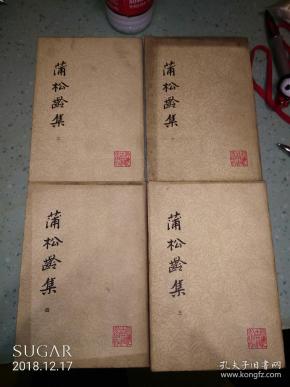 蒲松龄集
蒲松龄集
蒲松龄集
四
蒲松龄集
三
SUGAR
2018.12.17
孔夫子旧书网